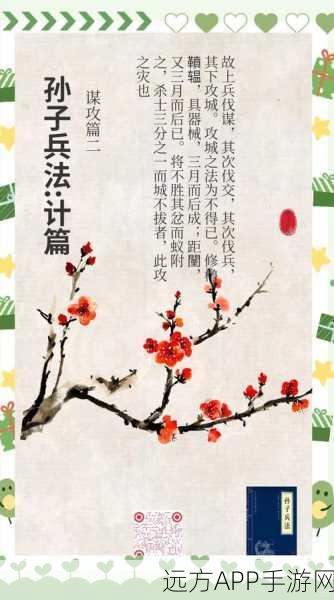 孙子兵法:计篇
谋攻篇二
故上兵伐谋，其次伐交，其次伐兵，
其下攻城。攻城之法为不得已。修
辒，具器械，三月而后成；距闉，
又三月而后已。将不胜其忿而蚁附
之，杀士三分之一而城不拔者，此攻
之灾也
孙子兵法
远方APP手游网